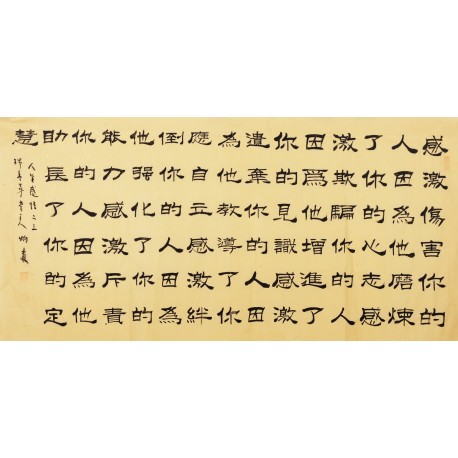 感激傷害你的
人因為他磨煉
了你的心志感
激欺騙你的人
因爲他增進了
你的見識感激
遣棄你的人因
為他教導了你
應自立感激絆
倒你的人因為
他强化了你的
能力感激斥責
你的人因為他
助長了你的定
慧
人生感悟之